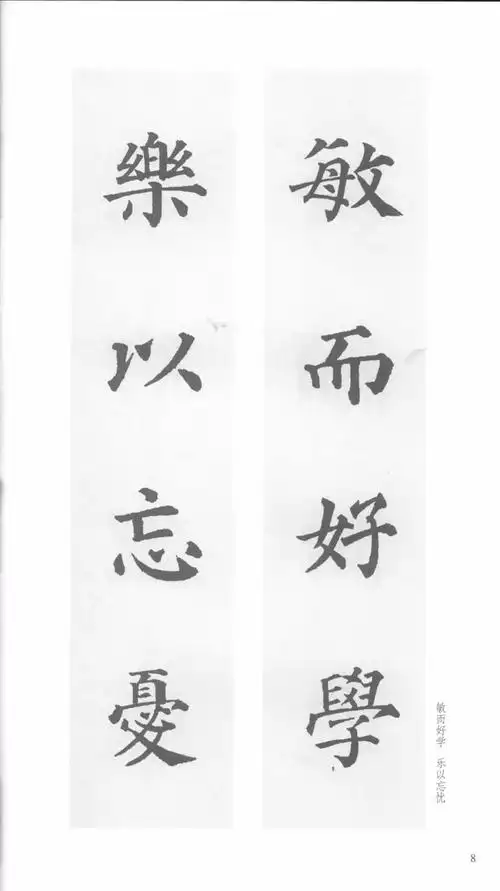 敏而好學
樂以忘憂
敏而好学 乐以忘忧
8